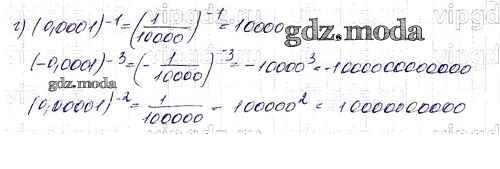 г) (0,0001)^-1 = (1/10000)^-1 = 10000
(-0,0001)^-3 = (-1/10000)^-3 = -10000^3 = -1000000000000
(0,00001)^-2 = 1/100000 - 100000^2 = 10000000000
gdz.moda
gdz.moda